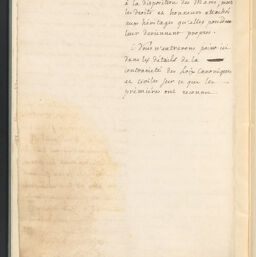 à la disposition des Maris, parce
les droits et honneurs attachés
aux héritages qu'elles possedent
leur deviennent propres.
Nous n'entrerons point ici
dans les détails de la
contrarieté des Loix Canoniques
et civiles sur ce que les
premières ont reconnu